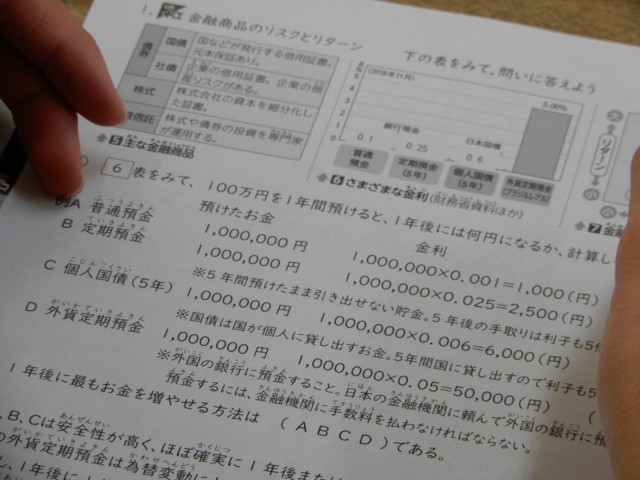 1. 金融商品のリスクとリターン
債券
国債 国などが発行する借用証書。元本保証あり。
社債 企業の借用証書。企業の倒産リスクがある。
株式 株式会社の資本を細分化した証書。
資信託 株式や債券の投資を専門家が運用する。
5 主な金融商品
下の表をみて、問いに答えよう
(2018年11月)
6
5
4
3
2
1
0
5.00%
銀行預金
日本国債
0.1
0.25
0.6
普通預金
定期預金(5年)
個人国債(5年)
外貨定期預金(ブラジルレアル)
6 さまざまな金利(財務省資料ほか)
大
リターン
小
小
7 金融
6 表をみて、100万円を1年間預けると、1年後には何円になるか、計算し
預けたお金
金利
例A 普通預金 1,000,000円 1,000,000×0.001=1,000(円)
B 定期預金 1,000,000円 1,000,000×0.025=2,500(円)
※5年間預けたまま引き出せない貯金。5年後の手取りは利子も5倍
C 個人国債(5年) 1,000,000円 1,000,000×0.006=6,000(円)
※国債は国が個人に貸し出すお金。5年間国に貸し出すので利子も5
D 外貨定期預金 1,000,000円 1,000,000×0.05=50,000(円) (
※外国の銀行に預金すること。日本の金融機関に頼んで外国の銀行に預
預金するには、金融機関に手数料を払わなければならない。
1年後に最もお金を増やせる方法は (ABCD)である。
、B、Cは安全性が高く、ほぼ確実に1年後また
の外貨定期預金は為替変動に
、1年後に1